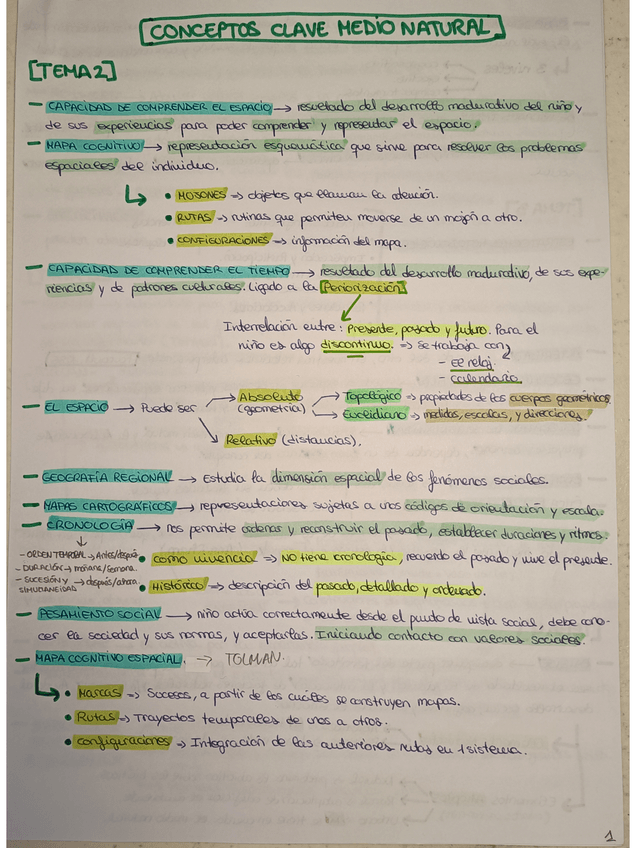 CONCEPTOS CLAVE MEDIO NATURAL
[TEMA 2]
— CAPACIDAD DE COMPRENDER EL ESPACIO → resultado del desarrollo madurativo del niño y
de sus experiencias para poder comprender y representar el espacio.
— MAPA COGNITIVO → representación esquemática que sirve para resolver los problemas
espaciales del individuo.
• MOJONES → objetos que llaman la atención.
• RUTAS → rutinas que permiten moverse de un mojón a otro.
• CONFIGURACIONES → información del mapa.
— CAPACIDAD DE COMPRENDER EL TIEMPO → resultado del desarrollo madurativo, de sus expe-
riencias y de patrones culturales. Ligado a la [Periorización]
Interrelación entre: Presente, pasado y futuro. Para el
niño es algo discontinuo. => se trabaja con
- el reloj.
- calendario.
— EL ESPACIO → Puede ser
Absoluto (geometría)
Topológico → propiedades de los cuerpos geométricos
Euclidiano → medidas, escalas, y direcciones.
Relativo (distancias).
— GEOGRAFÍA REGIONAL → Estudia la dimensión espacial de los fenómenos sociales.
— MAPAS CARTOGRÁFICOS → representaciones sujetas a unos códigos de orientación y escala.
— CRONOLOGÍA → nos permite ordenar y reconstruir el pasado, establecer duraciones y ritmos.
- ORDEN TEMPORAL → Antes/después
- DURACIÓN → mañana/semana.
- SUCESIÓN Y SIMULTANEIDAD → después/ahora.
• COMO VIVENCIA => No tiene cronología, recuerdo el pasado y vive el presente.
• HISTÓRICO => descripción del pasado, detallado y ordenado.
— PESAMIENTO SOCIAL → niño actúa correctamente desde el punto de vista social, debe cono-
cer la sociedad y sus normas, y aceptarlas. Iniciando contacto con valores sociales.
— MAPA COGNITIVO ESPACIAL. → TOLMAN.
• MARCAS → Sucesos, a partir de los cuáles se construyen mapas.
• Rutas → Trayectos temporales de unos a otros.
• Configuraciones → Integración de las anteriores rutas en 1 sistema.
1